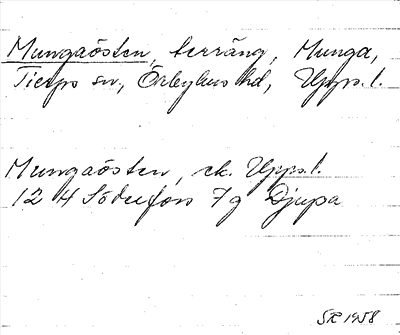 Mungaösten, terräng, Munga,
Tierps sn, Örbyhus hd, Upps. l.
Mungaösten, ek. Upps. l.
12 H Söderfors 7g Djupa
SR 1958